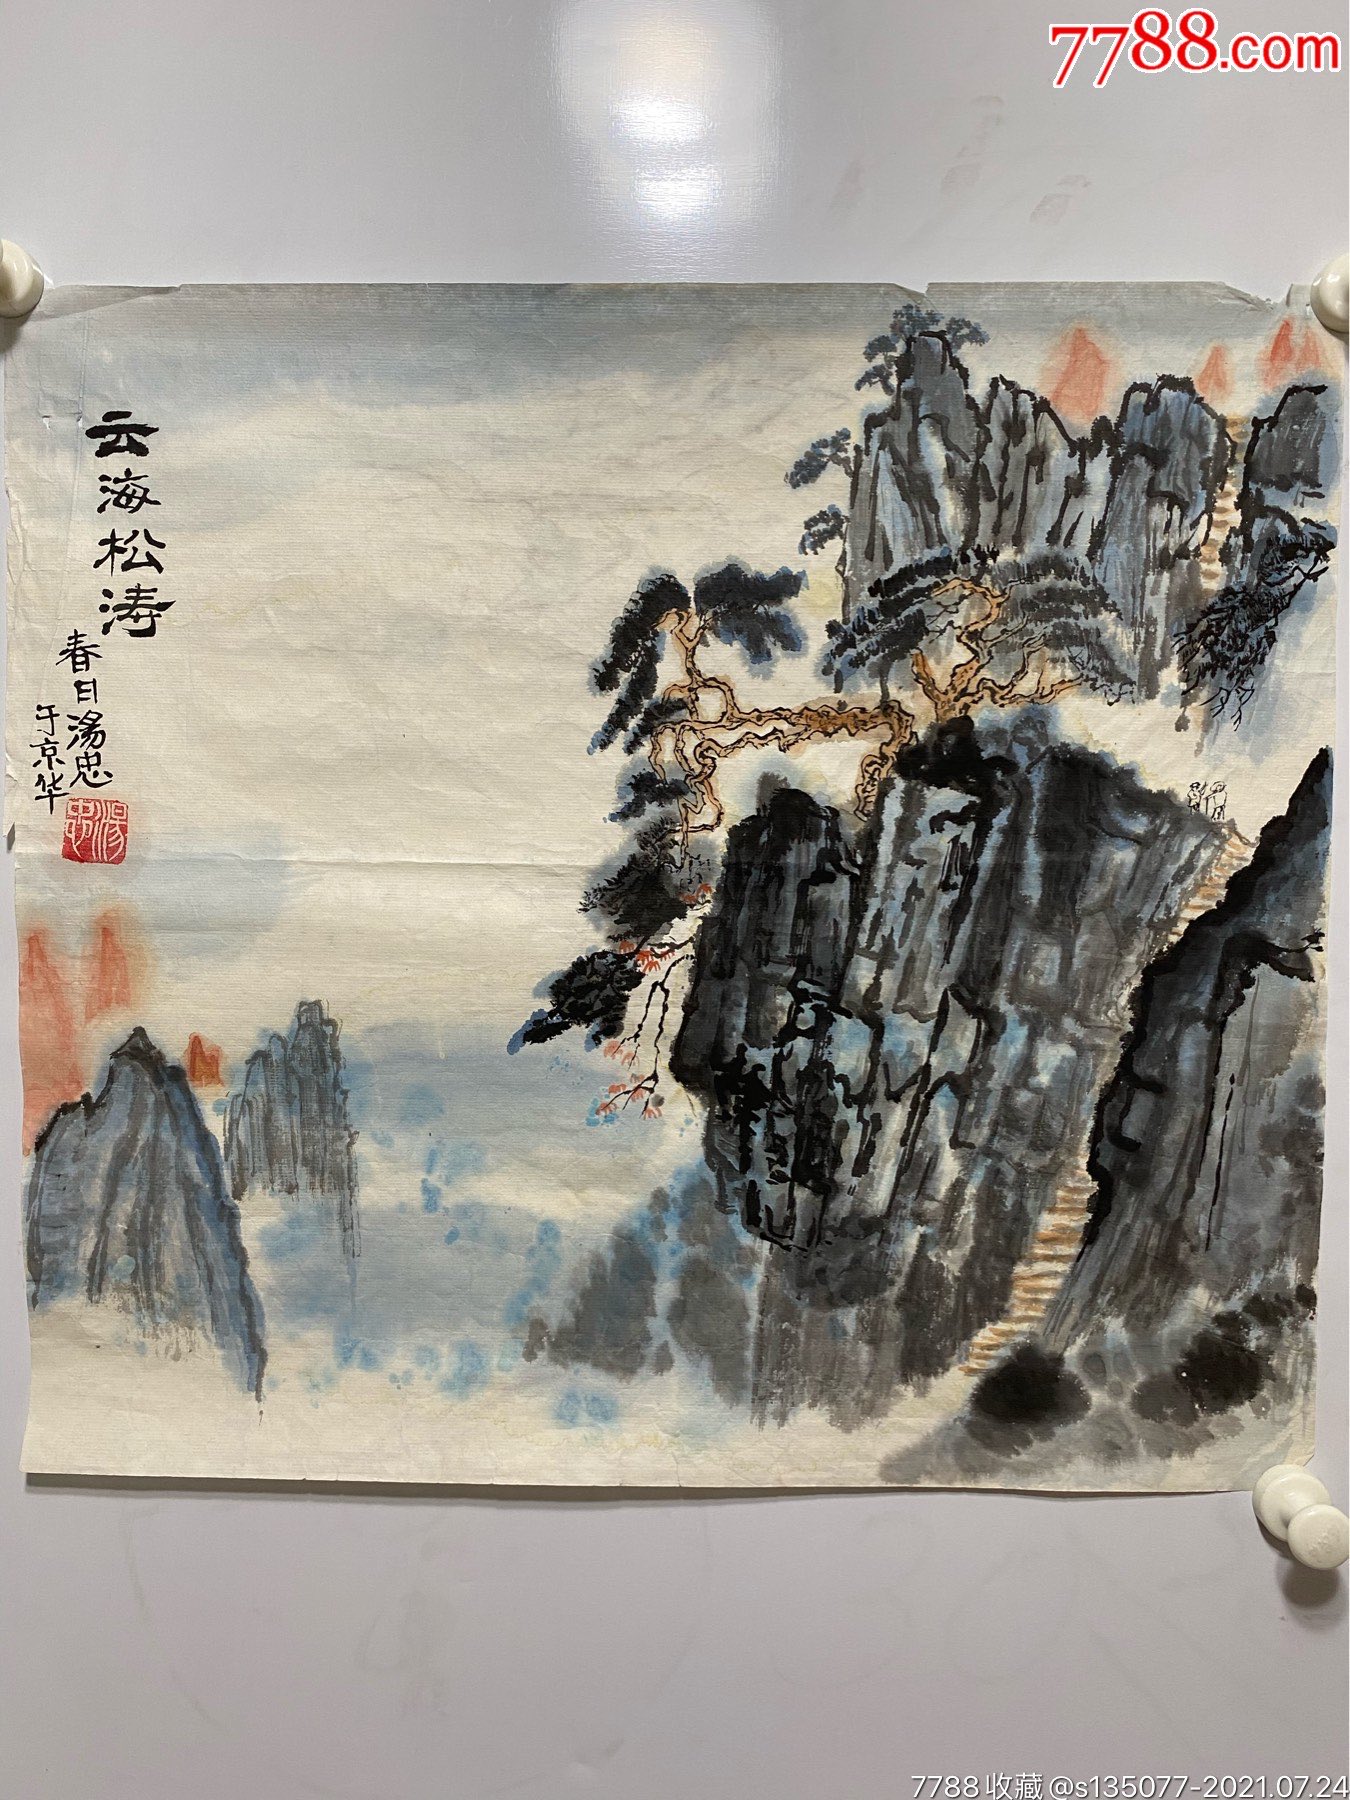 7788.com
云海松涛
春日湯忠
于京华
湯忠
7788收藏@s135077-2021.07.24